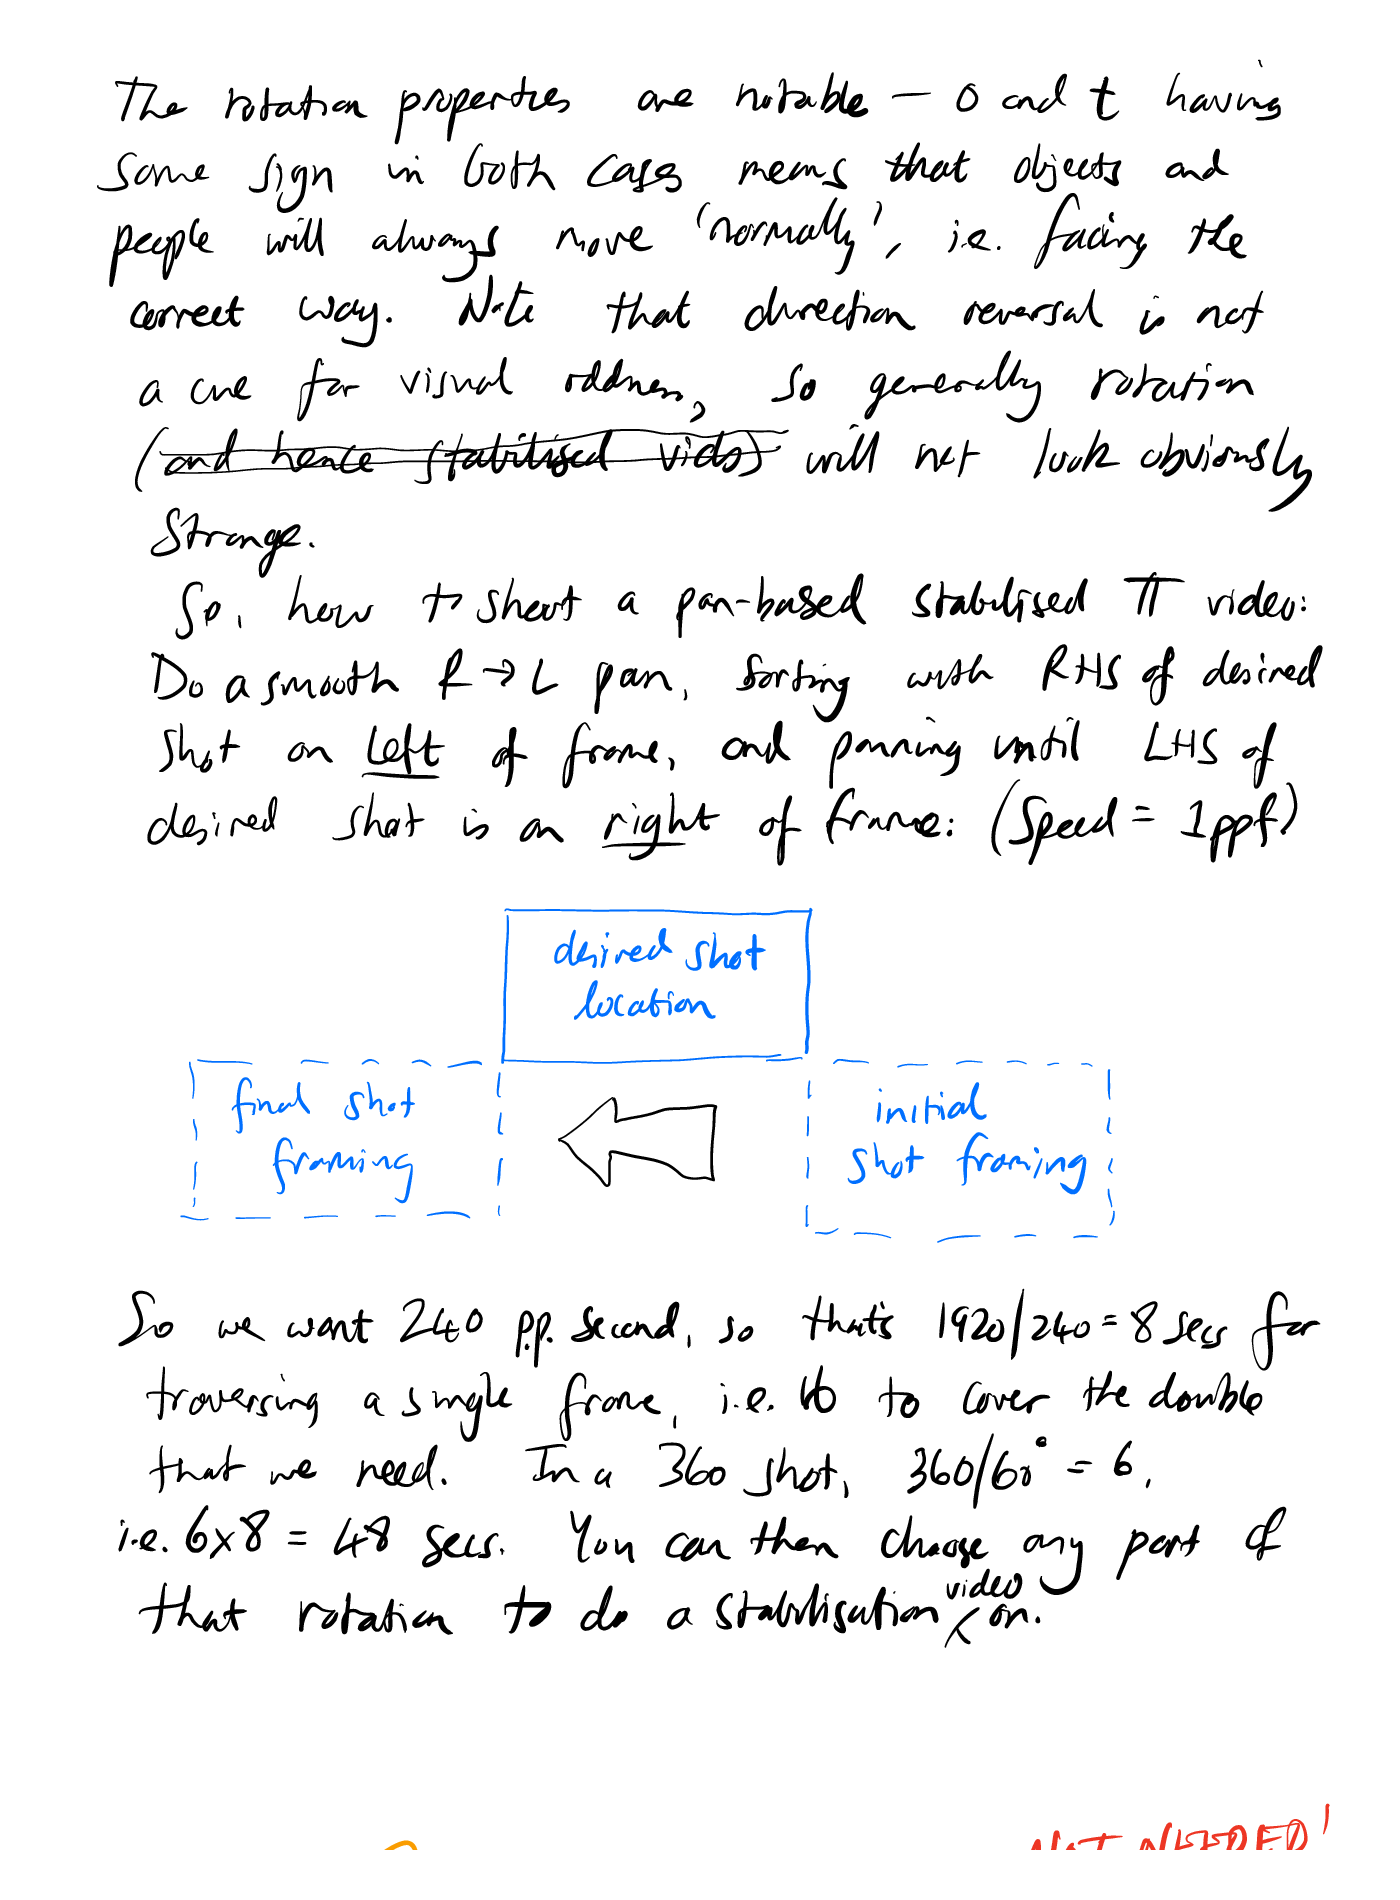 The rotation properties are notable — o and t having
same sign in both cases means that objects and
people will always move 'normally', i.e. facing the
correct way. Note that direction reversal is not
a cue for visual oddness, so generally rotation
(and hence stabilised vids) will not look obviously
strange.
So, how to shoot a pan-based stabilised π video:
Do a smooth R→L pan, starting with RHS of desired
shot on left of frame, and panning until LHS of
desired shot is on right of frame: (Speed = 1ppf)
desired shot
location
final shot
framing
initial
shot framing
So we want 240 p.p. second, so that's 1920/240 = 8 secs for
traversing a single frame, i.e. 16 to cover the double
that we need. In a 360 shot, 360/60° = 6,
i.e. 6x8 = 48 secs. You can then choose any part of
that rotation to do a stabilisation video on.
NOT NEEDED!